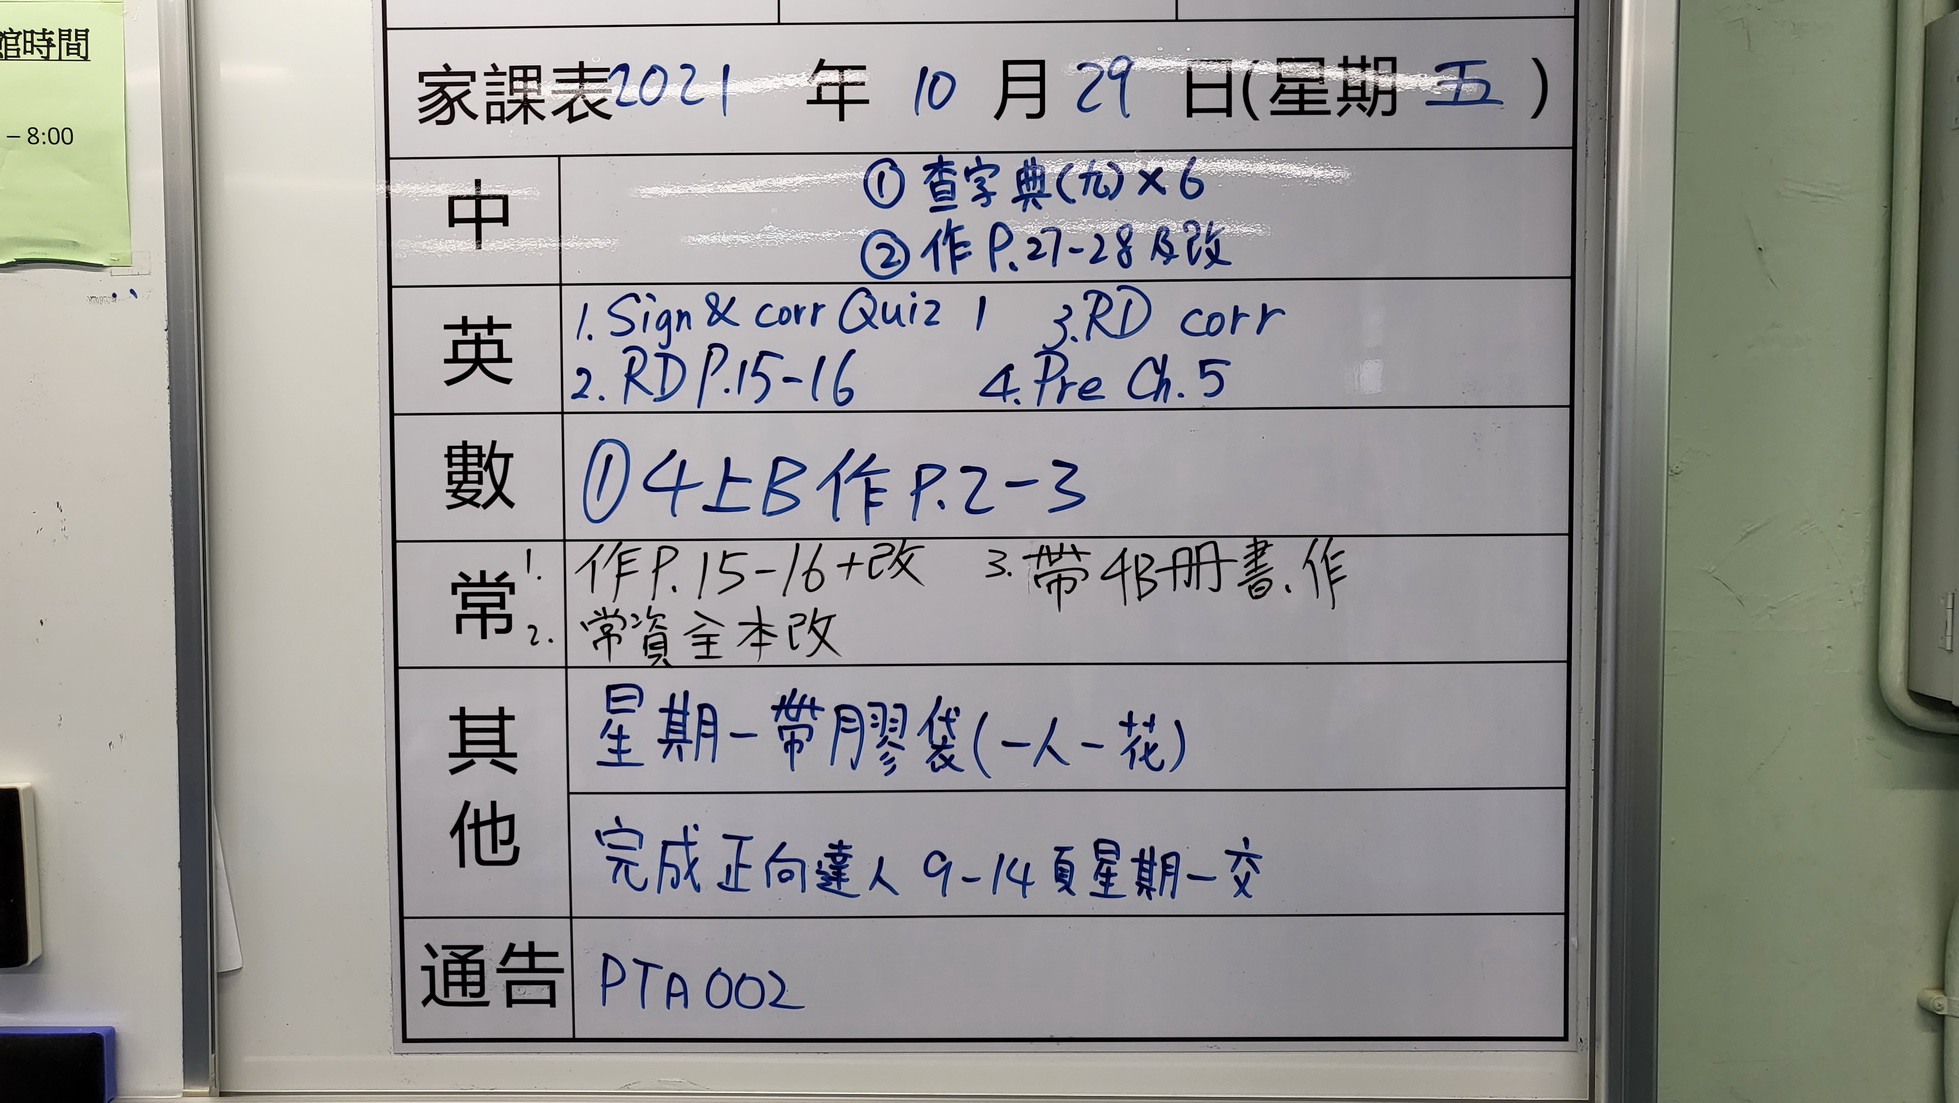 館時間
– 8:00
家課表2021 年 10 月 29 日(星期 五 )
中
① 查字典(九)×6
② 作 P.27-28 及改
英
1. Sign & corr Quiz 1 3. RD corr
2. RD P.15-16 4. Pre Ch. 5
數
① 4上B 作 P.2-3
常
1. 作P.15-16+改 3. 帶4B冊書、作
2. 常資全本改
其他
星期一帶膠袋(一人一花)
完成正向達人 9-14頁星期一交
通告
PTA 002